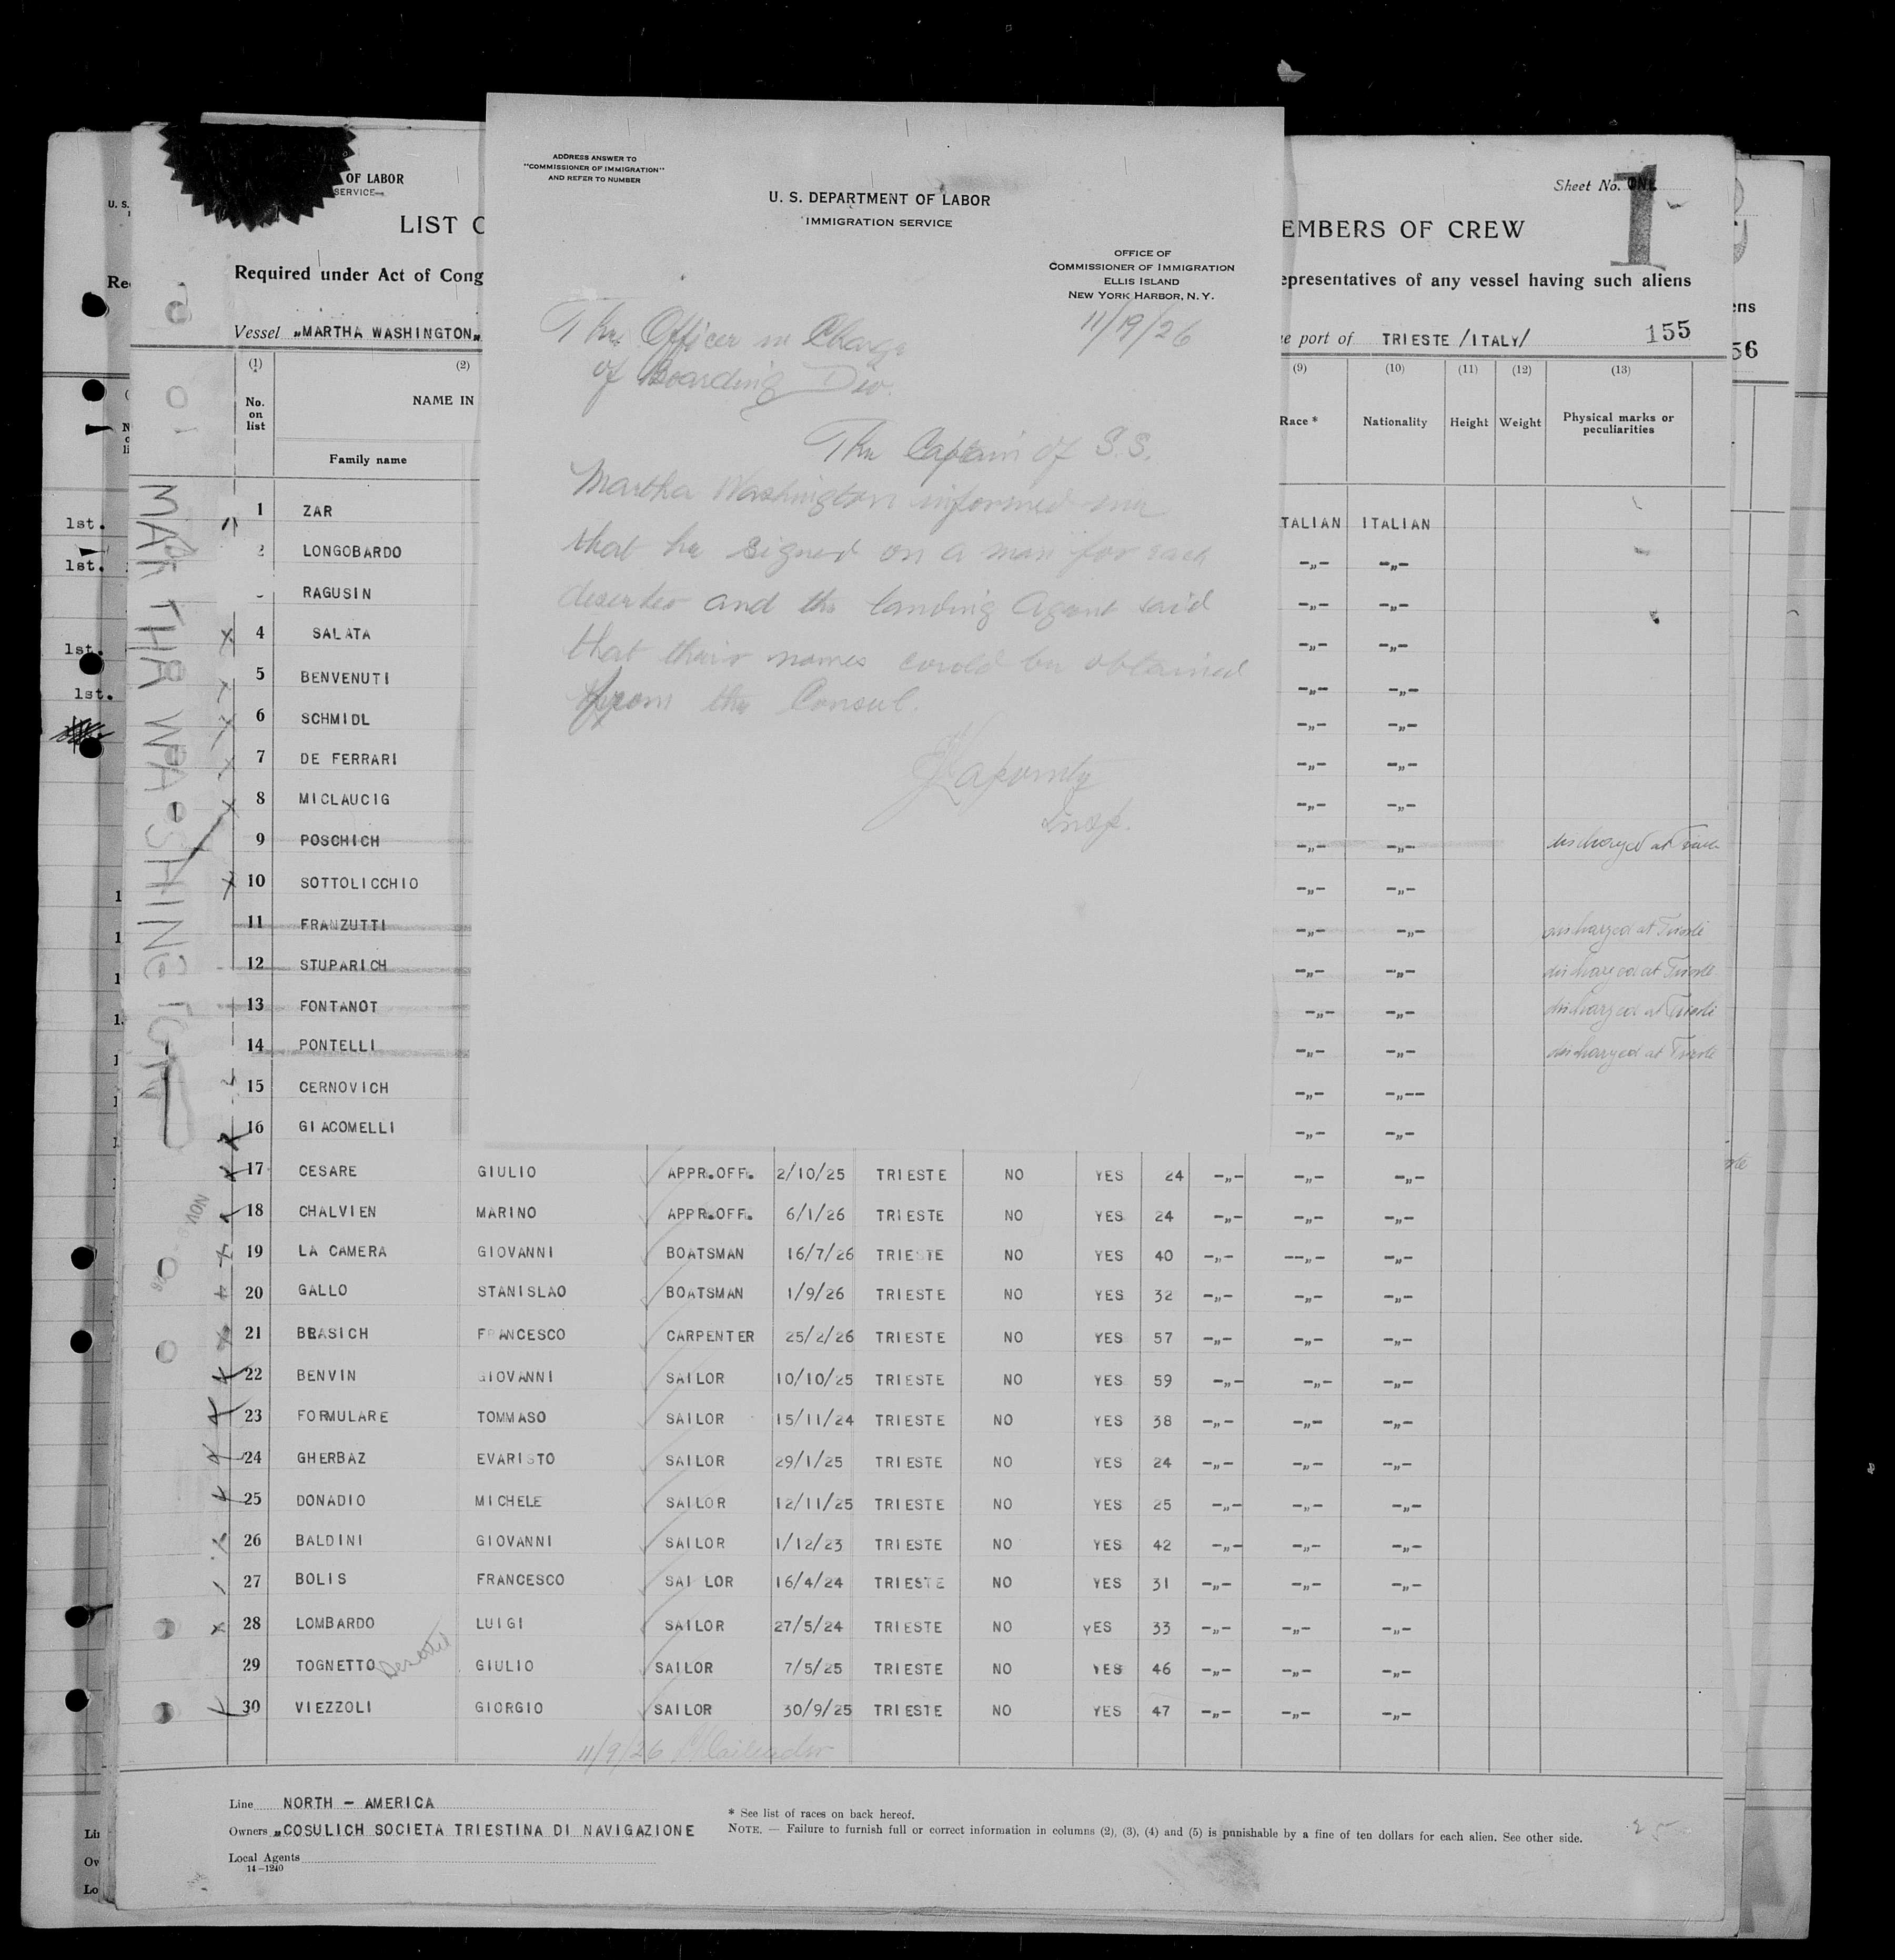 ADDRESS ANSWER TO
"COMMISSIONER OF IMMIGRATION"
AND REFER TO NUMBER
U. S. DEPARTMENT OF LABOR
IMMIGRATION SERVICE
OFFICE OF
COMMISSIONER OF IMMIGRATION
ELLIS ISLAND
NEW YORK HARBOR, N. Y.
11/19/26
The Officer in Charge
of Boarding Div.
The Captain of S.S.
Martha Washington informed me
that he signed on a man for each
deserter and the landing Agent said
that their names could be obtained
from the Consul.
Insp.
OF LABOR
SERVICE
Sheet No. ONE
1
LIST
EMBERS OF CREW
Required under Act of Cong
epresentatives of any vessel having such aliens
Vessel „MARTHA WASHINGTON„
e port of TRIESTE /ITALY/ 155
(1) (2) (9) (10) (11) (12) (13)
No. on list NAME IN Race * Nationality Height Weight Physical marks or peculiarities
Family name
MARTHA WASHINGTON
1 ZAR TALIAN ITALIAN
2 LONGOBARDO -„- -„-
RAGUSIN -„- -„-
4 SALATA -„- -„-
5 BENVENUTI -„- -„-
6 SCHMIDL -„- -„-
7 DE FERRARI -„- -„-
8 MICLAUCIG -„- -„-
9 POSCHICH -„- -„- discharged at
10 SOTTOLICCHIO -„- -„-
11 FRANZUTTI -„- -„- discharged at Trieste
12 STUPARICH -„- -„- discharged at Trieste
13 FONTANOT -„- -„- discharged at Trieste
14 PONTELLI -„- -„- discharged at Trieste
15 CERNOVICH -„- -„--
16 GIACOMELLI -„- -„-
17 CESARE GIULIO APPR.OFF. 2/10/25 TRIESTE NO YES 24 -„- -„- -„-
18 CHALVIEN MARINO APPR.OFF. 6/1/26 TRIESTE NO YES 24 -„- -„- -„-
19 LA CAMERA GIOVANNI BOATSMAN 16/7/26 TRIESTE NO YES 40 -„- --„- -„-
20 GALLO STANISLAO BOATSMAN 1/9/26 TRIESTE NO YES 32 -„- -„- -„-
21 BRASICH FRANCESCO CARPENTER 25/2/26 TRIESTE NO YES 57 -„- -„- -„-
22 BENVIN GIOVANNI SAILOR 10/10/25 TRIESTE NO YES 59 -„- -„- -„-
23 FORMULARE TOMMASO SAILOR 15/11/24 TRIESTE NO YES 38 -„- -„- -„-
24 GHERBAZ EVARISTO SAILOR 29/1/25 TRIESTE NO YES 24 -„- -„- -„-
25 DONADIO MICHELE SAILOR 12/11/25 TRIESTE NO YES 25 -„- -„- -„-
26 BALDINI GIOVANNI SAILOR 1/12/23 TRIESTE NO YES 42 -„- -„- -„-
27 BOLIS FRANCESCO SAI LOR 16/4/24 TRIESTE NO YES 31 -„- -„- -„-
28 LOMBARDO LUIGI SAILOR 27/5/24 TRIESTE NO YES 33 -„- -„- -„-
29 TOGNETTO Deserted GIULIO SAILOR 7/5/25 TRIESTE NO YES 46 -„- -„- -„-
30 VIEZZOLI GIORGIO SAILOR 30/9/25 TRIESTE NO YES 47 -„- -„- -„-
11/9/26
Line NORTH - AMERICA
Owners „COSULICH SOCIETA TRIESTINA DI NAVIGAZIONE
Local Agents
14-1240
* See list of races on back hereof.
NOTE. — Failure to furnish full or correct information in columns (2), (3), (4) and (5) is punishable by a fine of ten dollars for each alien. See other side.
NOV
U. S.
Re
1st.
1st.
1st.
1st.
Li
Ow
Lo
ens
56